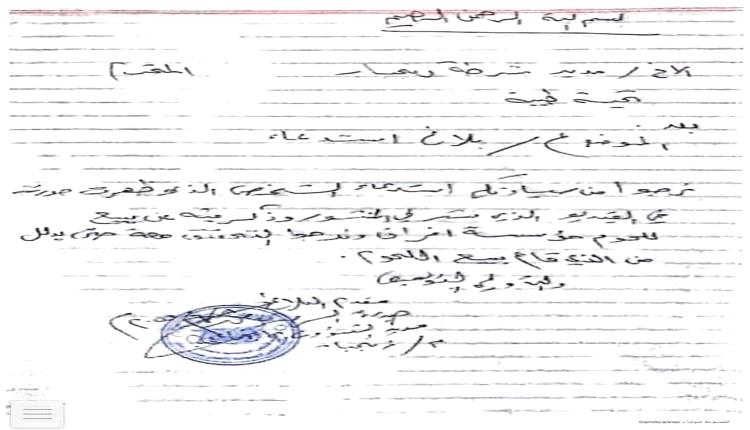 بسم الله الرحمن الرحيم
الاخ / مدير شرطة زنجبار المحترم
تحية طيبة
بعد
الموضوع / بلاغ استدعاء
نرجوا من سيادتكم استدعاء الشخص الذي ظهرت صورته
في الفيديو الذي نشر في المنشور وذكر فيه عن بيع
للحوم مؤسسة ونرجوا التحقيق معه حتى يدلل
من الذي قام ببيع اللحوم .
والله ولي التوفيق
مقدم البلاغ
مدير
م / زنجبار
CamScanner